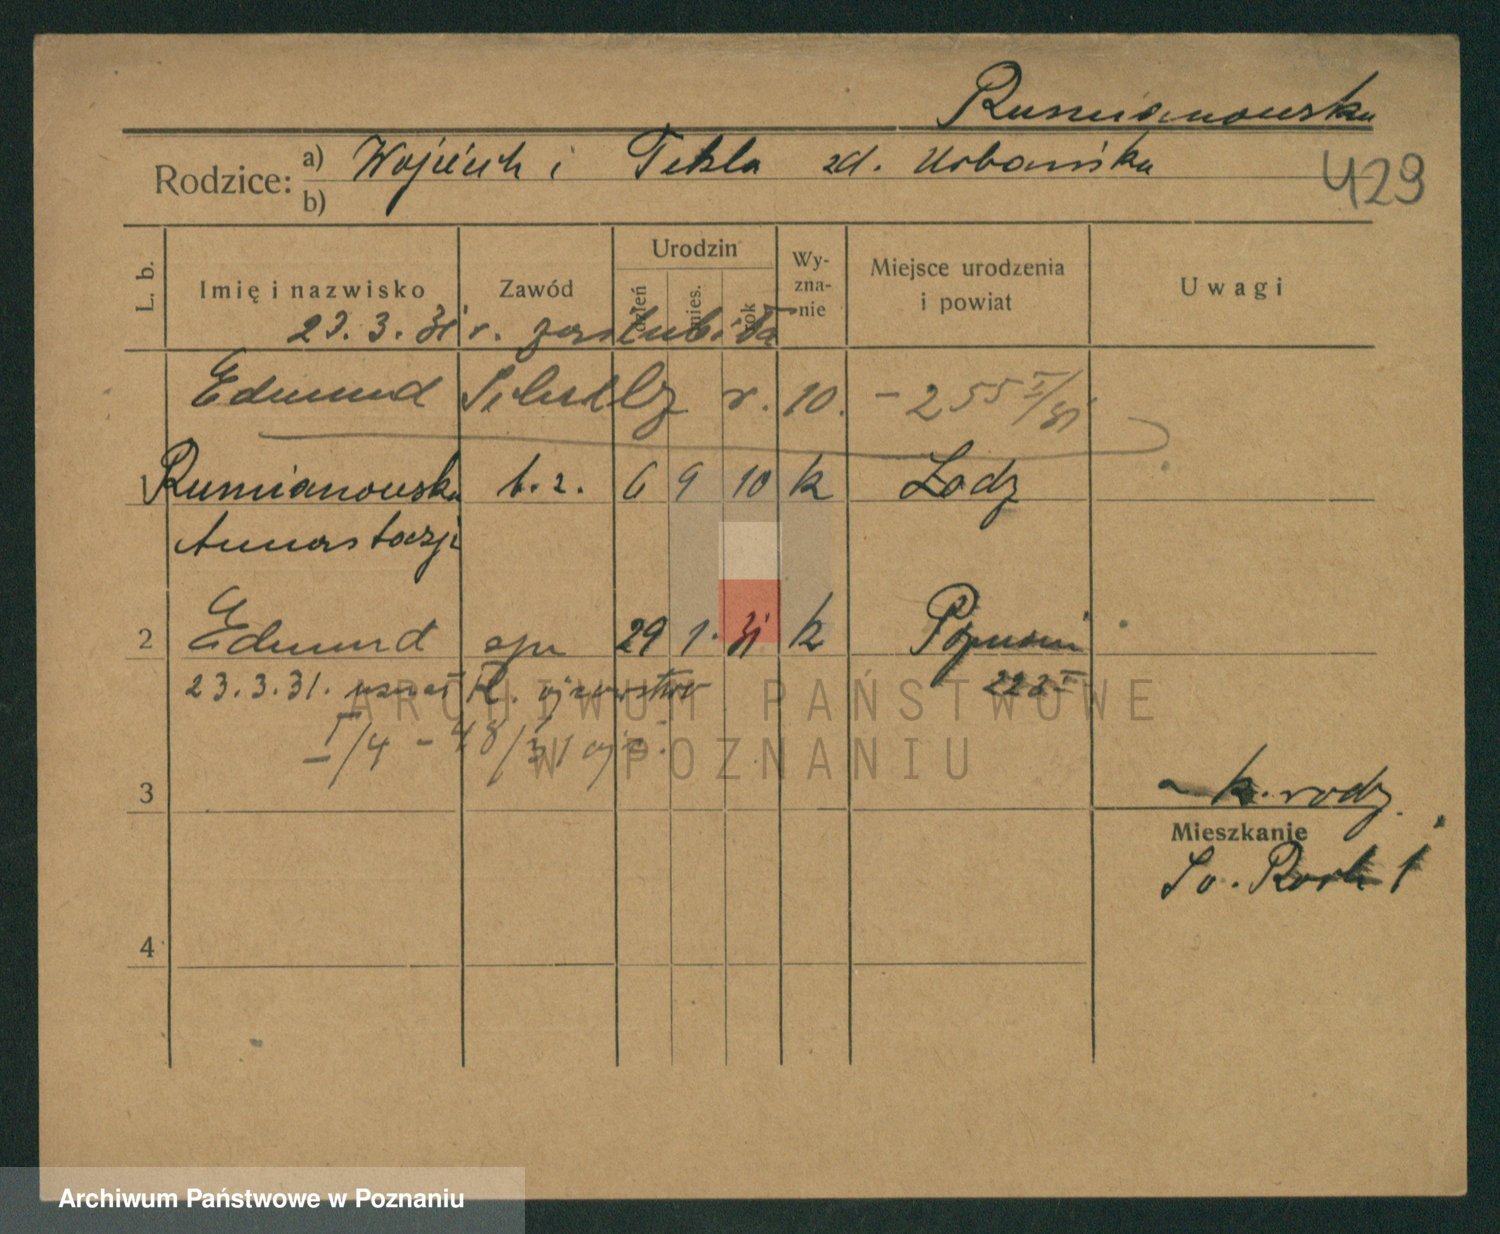 Rumianowska
Rodzice: a) Wojciech i Tekla zd. Urbańska
b)
429
L. b. Imię i nazwisko Zawód Urodzin dzień mies. rok Wy-zna-nie Miejsce urodzenia i powiat Uwagi
23. 3. 31 r. zaślubiła
Edmund r. 10. - 255 I/31
1 Rumianowska b. z. 6 9 10 k Łodz
Anastazji
2 Edmund syn 29 1. 31 k Poznań
23.3.31. uznał R. ojcowstwo 223 I
I/4 - 48/31
3 k. rodz.
Mieszkanie
Św. Roch 1
4
ARCHIWUM PAŃSTWOWE
W POZNANIU
Archiwum Państwowe w Poznaniu